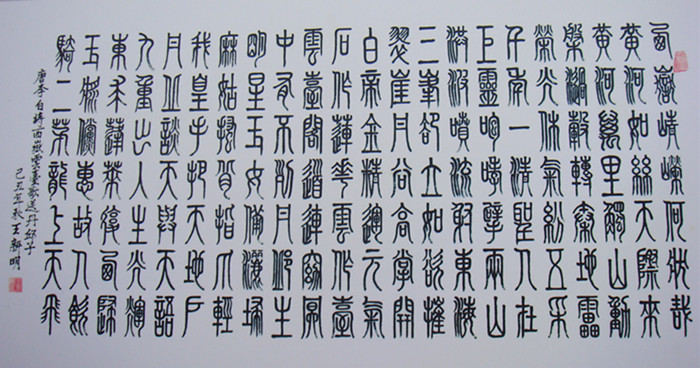 西嶽崢嶸何壯哉
黃河如絲天際來
黃河萬里觸山動
盤渦轂轉秦地雷
榮光休氣紛五采
千年一清聖人在
巨靈咆哮擘兩山
洪波噴流射東海
三峯卻立如欲摧
翠崖丹谷高掌開
白帝金精運元氣
石作蓮華雲作臺
雲臺閣道連窈冥
中有不死丹邱生
明星玉女備灑埽
麻姑搔背指爪輕
我皇手把天地戶
丹丘談天與天語
九重出入生光輝
東來蓬萊復西歸
玉漿儻惠故人飲
騎二茅龍上天飛
唐李白詩西嶽雲臺歌送丹邱子
己丑年秋王新明